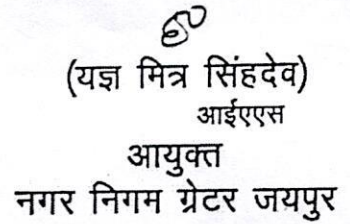 (यज्ञ मित्र सिंहदेव)
आईएएस
आयुक्त
नगर निगम ग्रेटर जयपुर